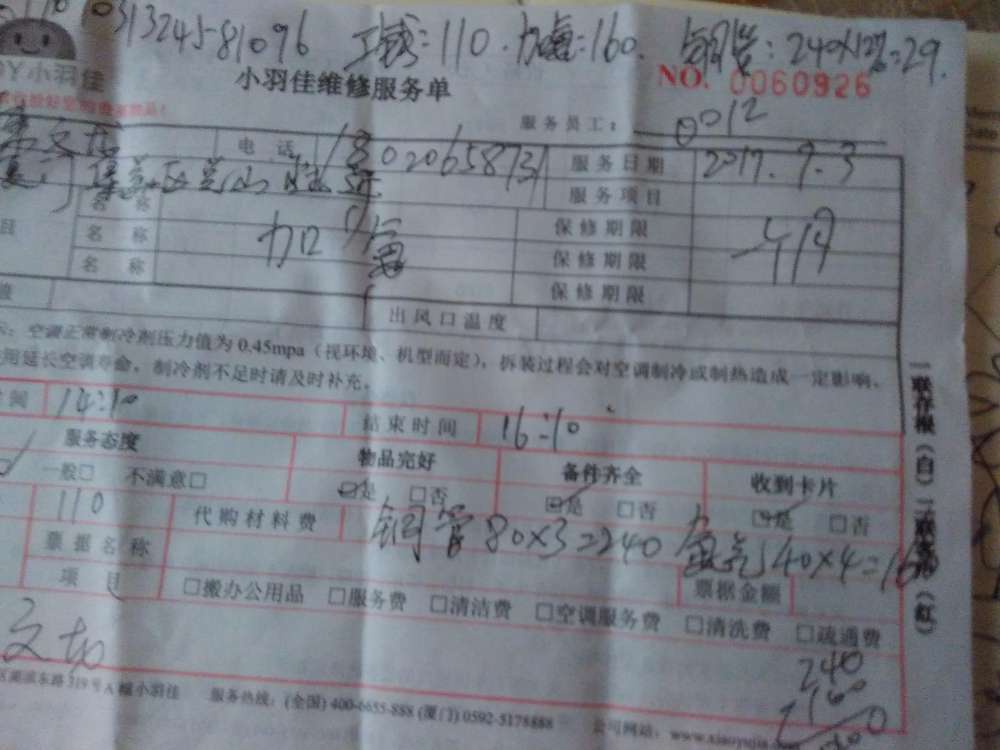 0313245-81096 工城:110.加氟:160. 铜管:240×12%=29.
小羽佳
小羽佳维修服务单 NO. 0060926
服务员工: 0012
电 话 18020658731 服务日期 2017.9.3
名 称 服务项目
名 称 加 氟 保修期限
名 称 保修期限
保修期限
出风口温度
空调正常制冷剂压力值为 0.45mpa(视环境、机型而定),拆装过程会对空调制冷或制热造成一定影响。
用延长空调寿命,制冷剂不足时请及时补充。
间 14:10 结束时间 16:10
服务态度 物品完好 备件齐全 收到卡片
一般□ 不满意□ □是 □否 □是 □否 □是 □否
110 代购材料费 铜管80×3=240 氟气40×4=16
票据名称
项 目 □搬办公用品 □服务费 □清洁费 □空调服务费 □清洗费 □疏通费
票据金额
240
160
东路319号A幢小羽佳 服务热线:(全国) 400-6655-888 (厦门) 0592-5178888 公司网站:
一联存根(白)二联(红)